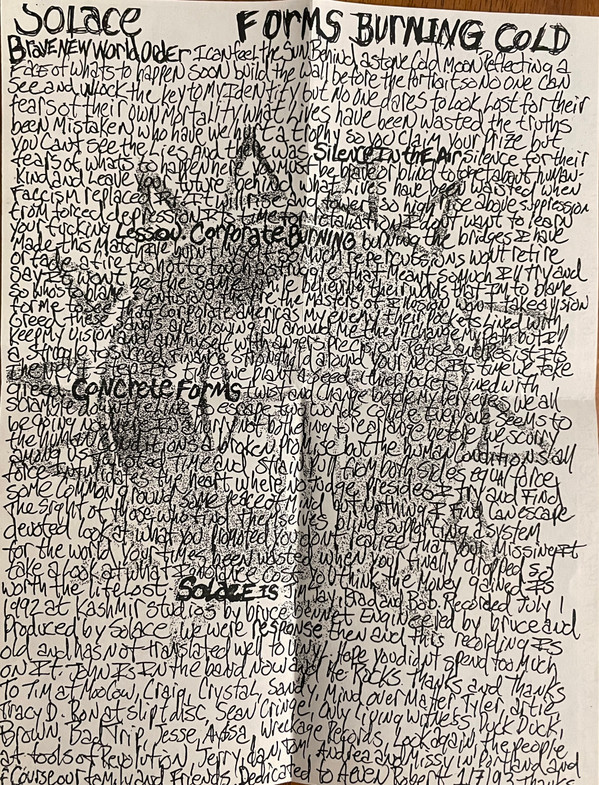 Solace Forms Burning Cold
Brave New World Order I can feel the Sun Behind a stone Cold Moon reflecting a
Face of whats to happen soon build the wall before the Portrait so no one can
See and unlock the key to my Identity but no one dares to look Lost for their
fears of their own Mortality what Lives have been wasted the truths
been Mistaken who have we hurt a trophy so you claim your Prize but
You cant see the Lies And the was Silence In the Air silence for their
fears of whats to happen here you must be brave or blind to forget about human-
kind and leave future behind what Lives have been wasted when
raccism replaced will rise and tower so high rise above suppression
from forced depression Its time for retaliation I dont want to learn
your fucking Lesson. Corporate Burning burning the bridges I have
made this Match wont so Much repercutions wont retire
or fade a fire too hot to touch a struggle that Meant so Much Ill try and
Say It wont be the same while believing their words that Im to blame
so whos to blame confusion the are the Masters of Illusion wont take a vision
for me that Corporate americas My enemy their Pockets Lined with
Greed these are blowing all around Me they'll change my but Ill
keep My Vision and arm Myself with anger resist Its
a struggle around your Neck Its time we take
the next step Its time we plant a seed Pockets Lined with
greed Concrete Forms twist and change before My Very eyes we all
scramble down the line to escape two worlds collide Everyone Seems to
be going nowhere In a hurry not bothering to rearrange before we scurry
the human conditions a broken Promise but the human Conditions all
among us time and strain Pull from both sides equal force
force Intimidate the heart where Presides I try and Find
some Common ground some peace of Mind but Nothing I Find Can escape
the sight of those who find themselves blind a system
devoted Look at what you promoted you dont realize that your Missing It
for the world Your times been wasted when you finally dropped
take a look at what cost You think the Money gained Is
worth the life Lost Solace is Jim, Jay, Brad and Rob. Recorded July 1
1992 at Kashmir studies by bruce bennet Engineered by bruce and
Produced by solace we were response then and This recording Is
old and has not translated well to Vinyl Hope you didnt spend too Much
on It. John Is In the band now and He Rocks Thanks and Thanks
To Tim at MooCow, Craig, Crystal, Sandy, Mind over Matter, Tyler, artie
Tracy D. Ron at slipt disc, Sean Cringe, Only Living Witness, Duck Duck,
Brown, Bad Trip, Jesse, Wreckage Records, Look again, the people
at tools of Revolution, Jerry, dan, Tom, Andrea and Missy in Portland and
of Course our family and Friends. Dedicated to Robert 1/7/93 Thanks